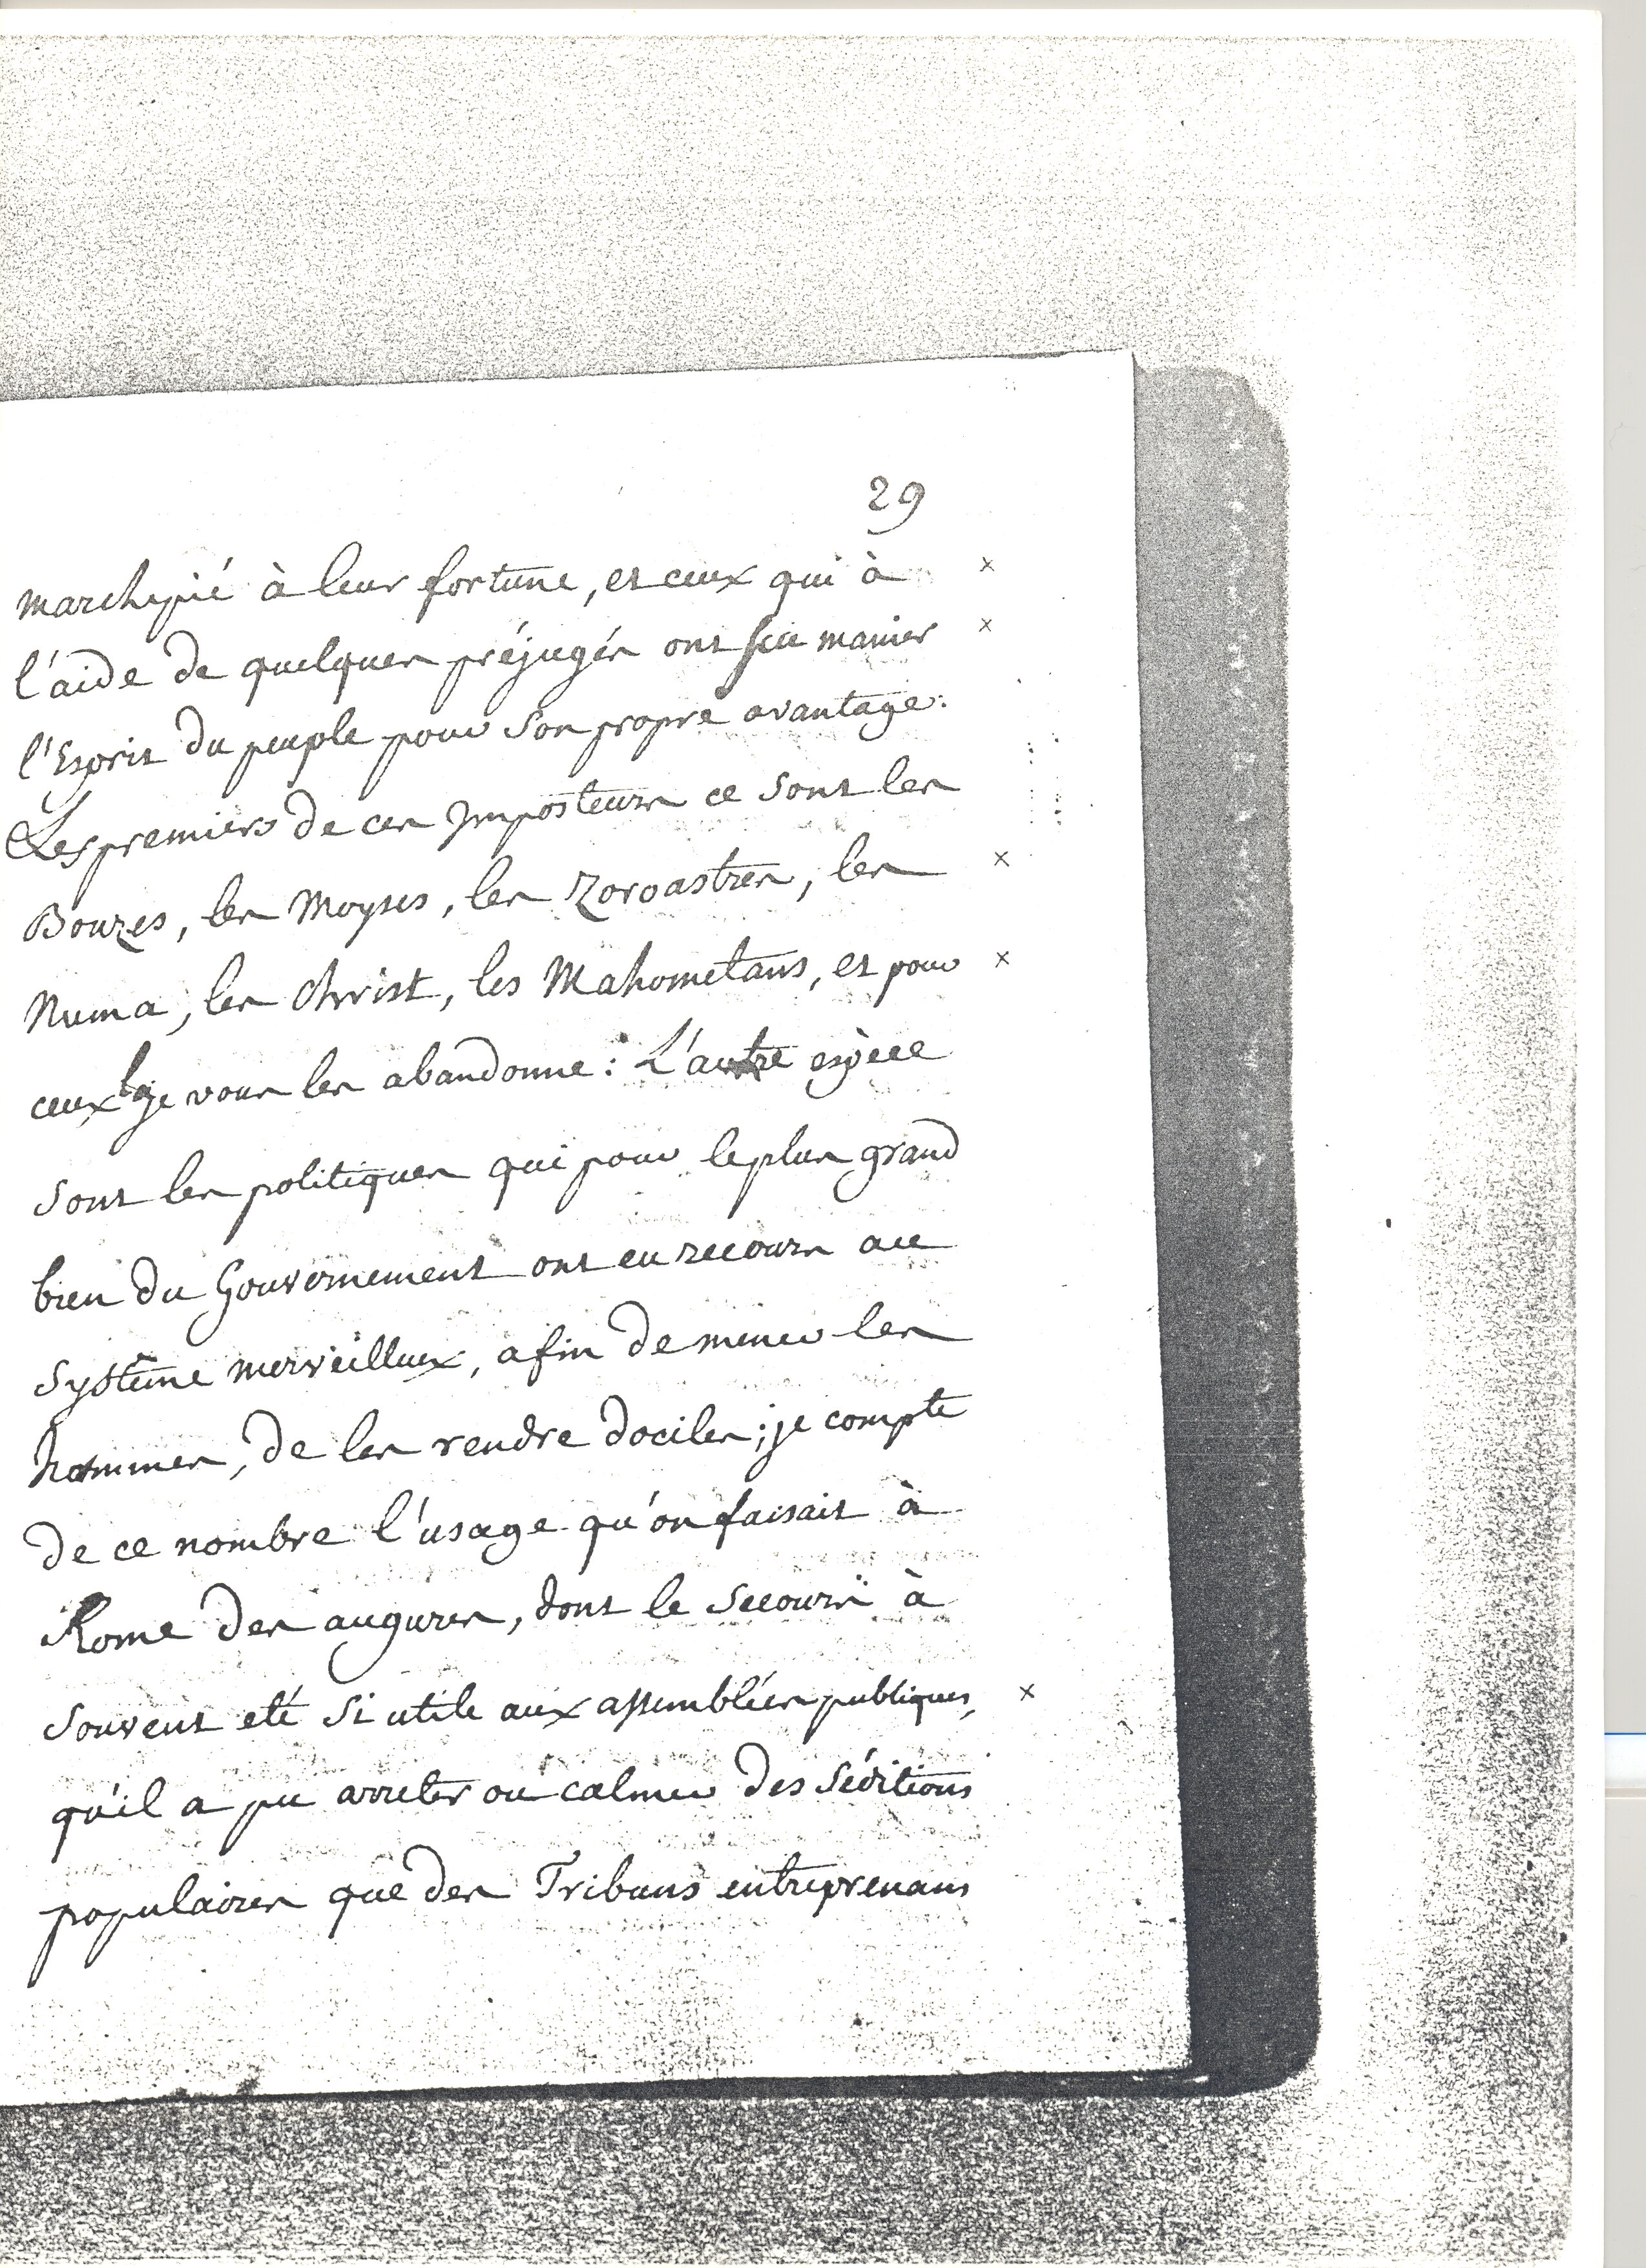 29
marchepié à leur fortune, et ceux qui à ×
l'aide de quelques préjugés ont sçu manier ×
l'Esprit du peuple pour son propre avantage:
Les premiers de ces Imposteurs ce sont les
Bonzes, les Moyses, les Zoroastres, les ×
Numa, les Christ, les Mahometans, et pour ×
ceux là je vous les abandonne: L'autre espèce
sont les politiques qui pour le plus grand
bien du Gouvernement ont eu recours au
Systême merveilleux, afin de mener les
hommes, de les rendre dociles; je compte
de ce nombre l'usage qu'on faisait à
Rome des augures, dont le secours à
souvent eté si utile aux assemblées publiques, ×
qu'il a pu arreter ou calmer des séditions
populaires que des Tribuns entreprenans